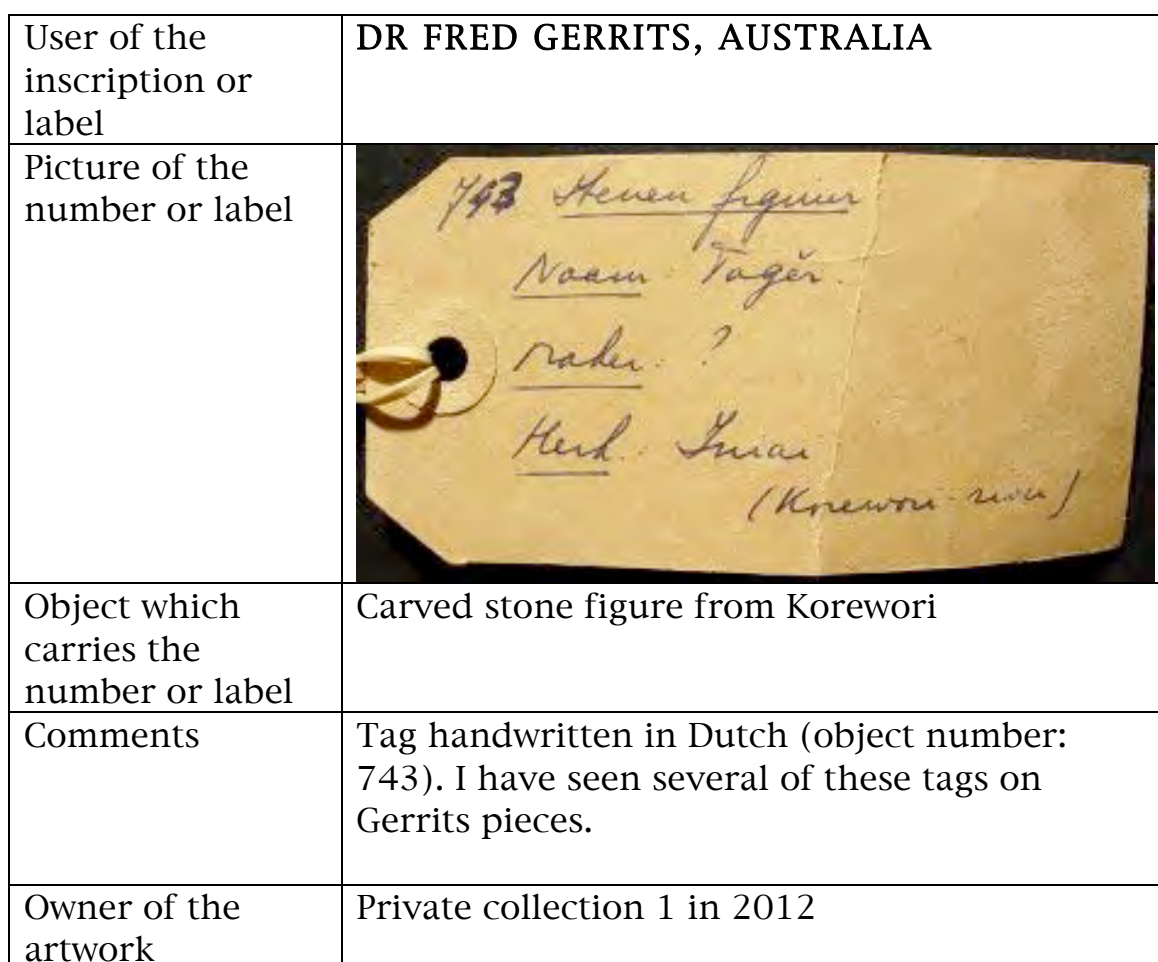 User of the
inscription or
label
DR FRED GERRITS, AUSTRALIA
Picture of the
number or label
743 Stenen figuur
Naam: Tagěr.
Maker: ?
Herk.: Imiai
(Korewori-
Object which
carries the
number or label
Carved stone figure from Korewori
Comments
Tag handwritten in Dutch (object number:
743). I have seen several of these tags on
Gerrits pieces.
Owner of the
artwork
Private collection 1 in 2012